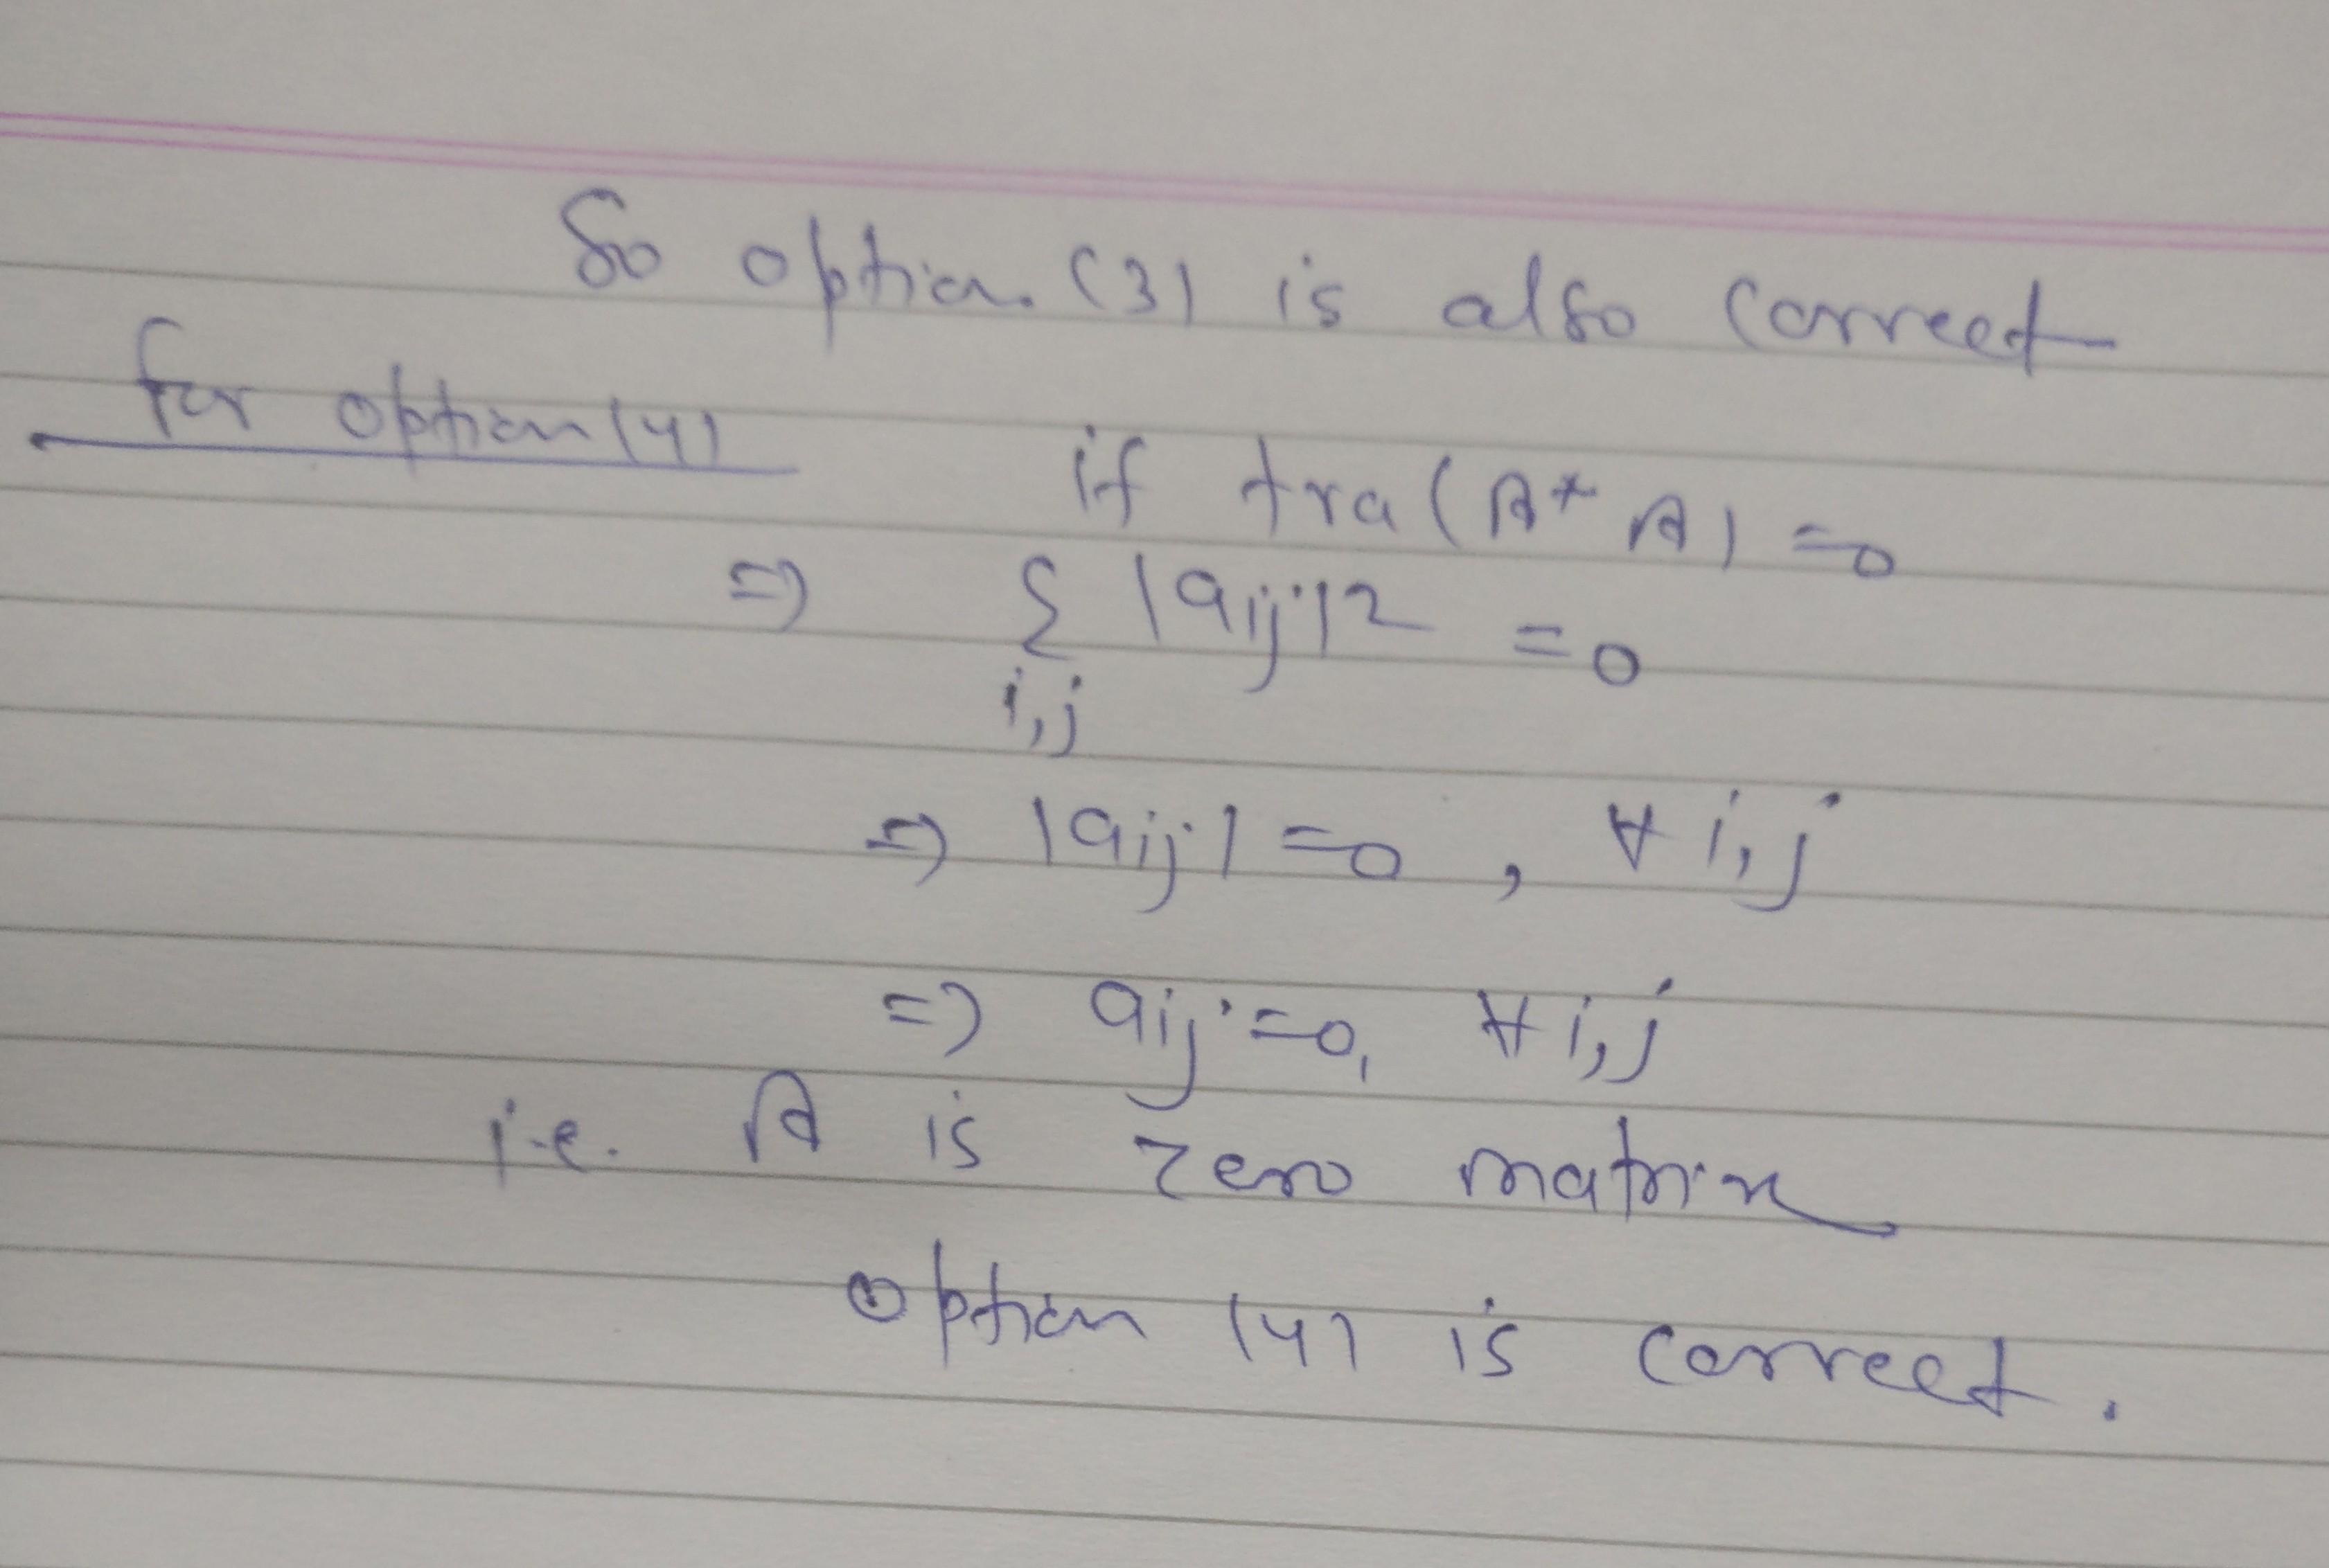 So option (3) is also correct
for option (4)
if tra(A* A) = 0
⇒ Σ |aij|2 = 0
i,j
⇒ |aij| = 0 , ∀ i,j
⇒ aij = 0, ∀ i,j
i.e. A is zero matrix
option (4) is correct.